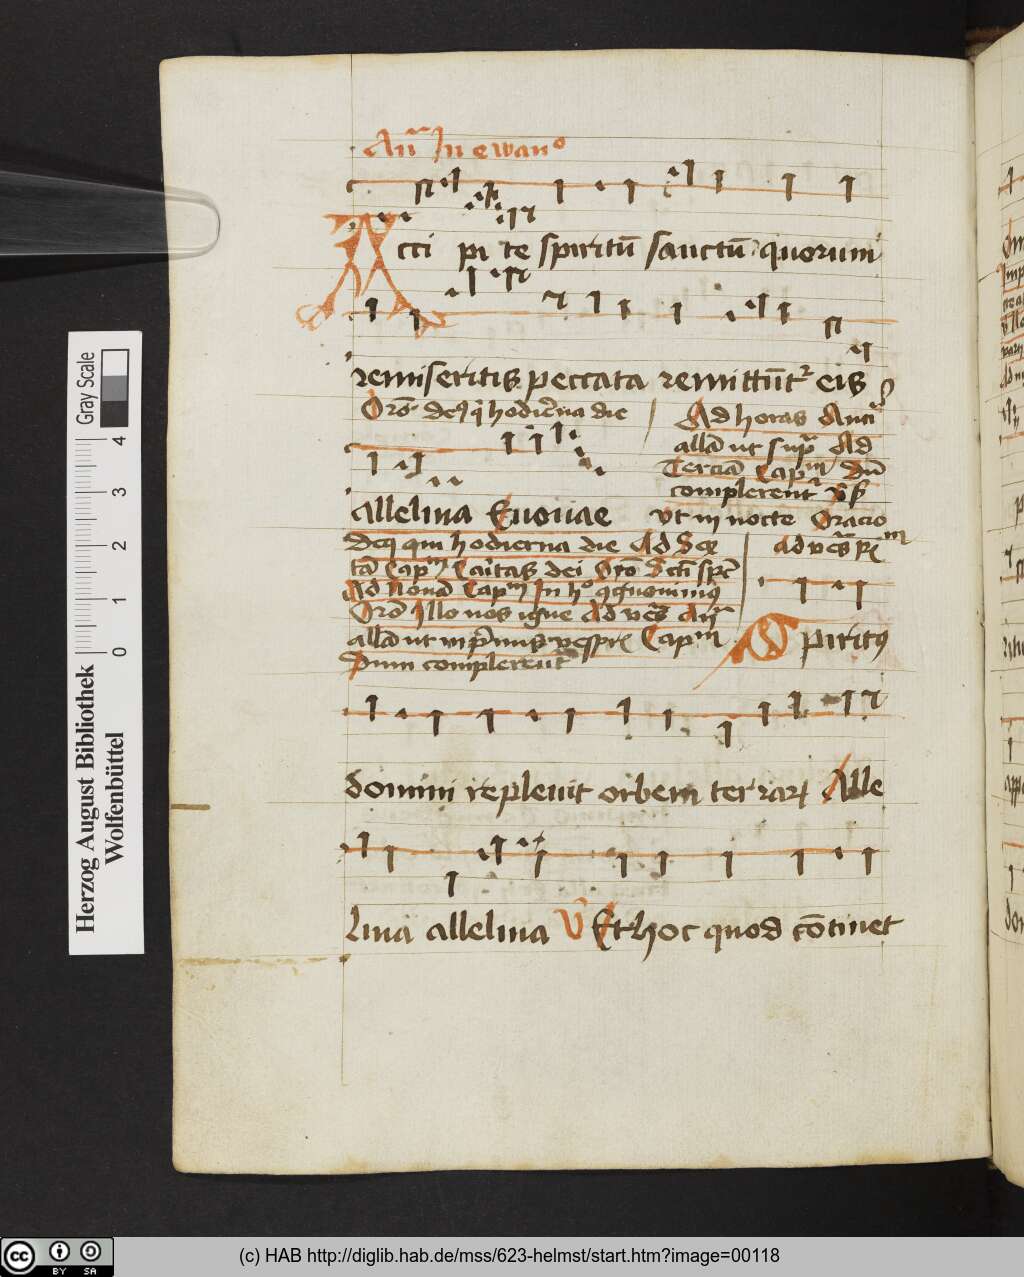 Añ In ewanᵒ
Acci pi te spiritū sanctū quorum
remiseritis peccata remittūtʳ eis
Orō. deq̄ hodiēna die
Ad horas Anaᵃ
allā ut supᵃ Ad
Terciā Capᵐ Dū
complerent
alleluia Euouae
vt in nocte Oracio
deq qui hodierna die Ad Sex
tā Capᵐ Caitas dei
Ad Nonā Capᵐ In hᵒ
Orō Illo nos igne Ad vēs Añ
allā ut in pⁱmis vesper Capᵐ
Dum complerent
ad vēs
Spiritꝰ
domini repleuit orbem terrarꝝ Alle
luia alleluia V̄ Et hoc quod cōtinet
Herzog August Bibliothek
Wolfenbüttel
0 1 2 3 4
Gray Scale
cc BY SA
(c) HAB http://diglib.hab.de/mss/623-helmst/start.htm?image=00118